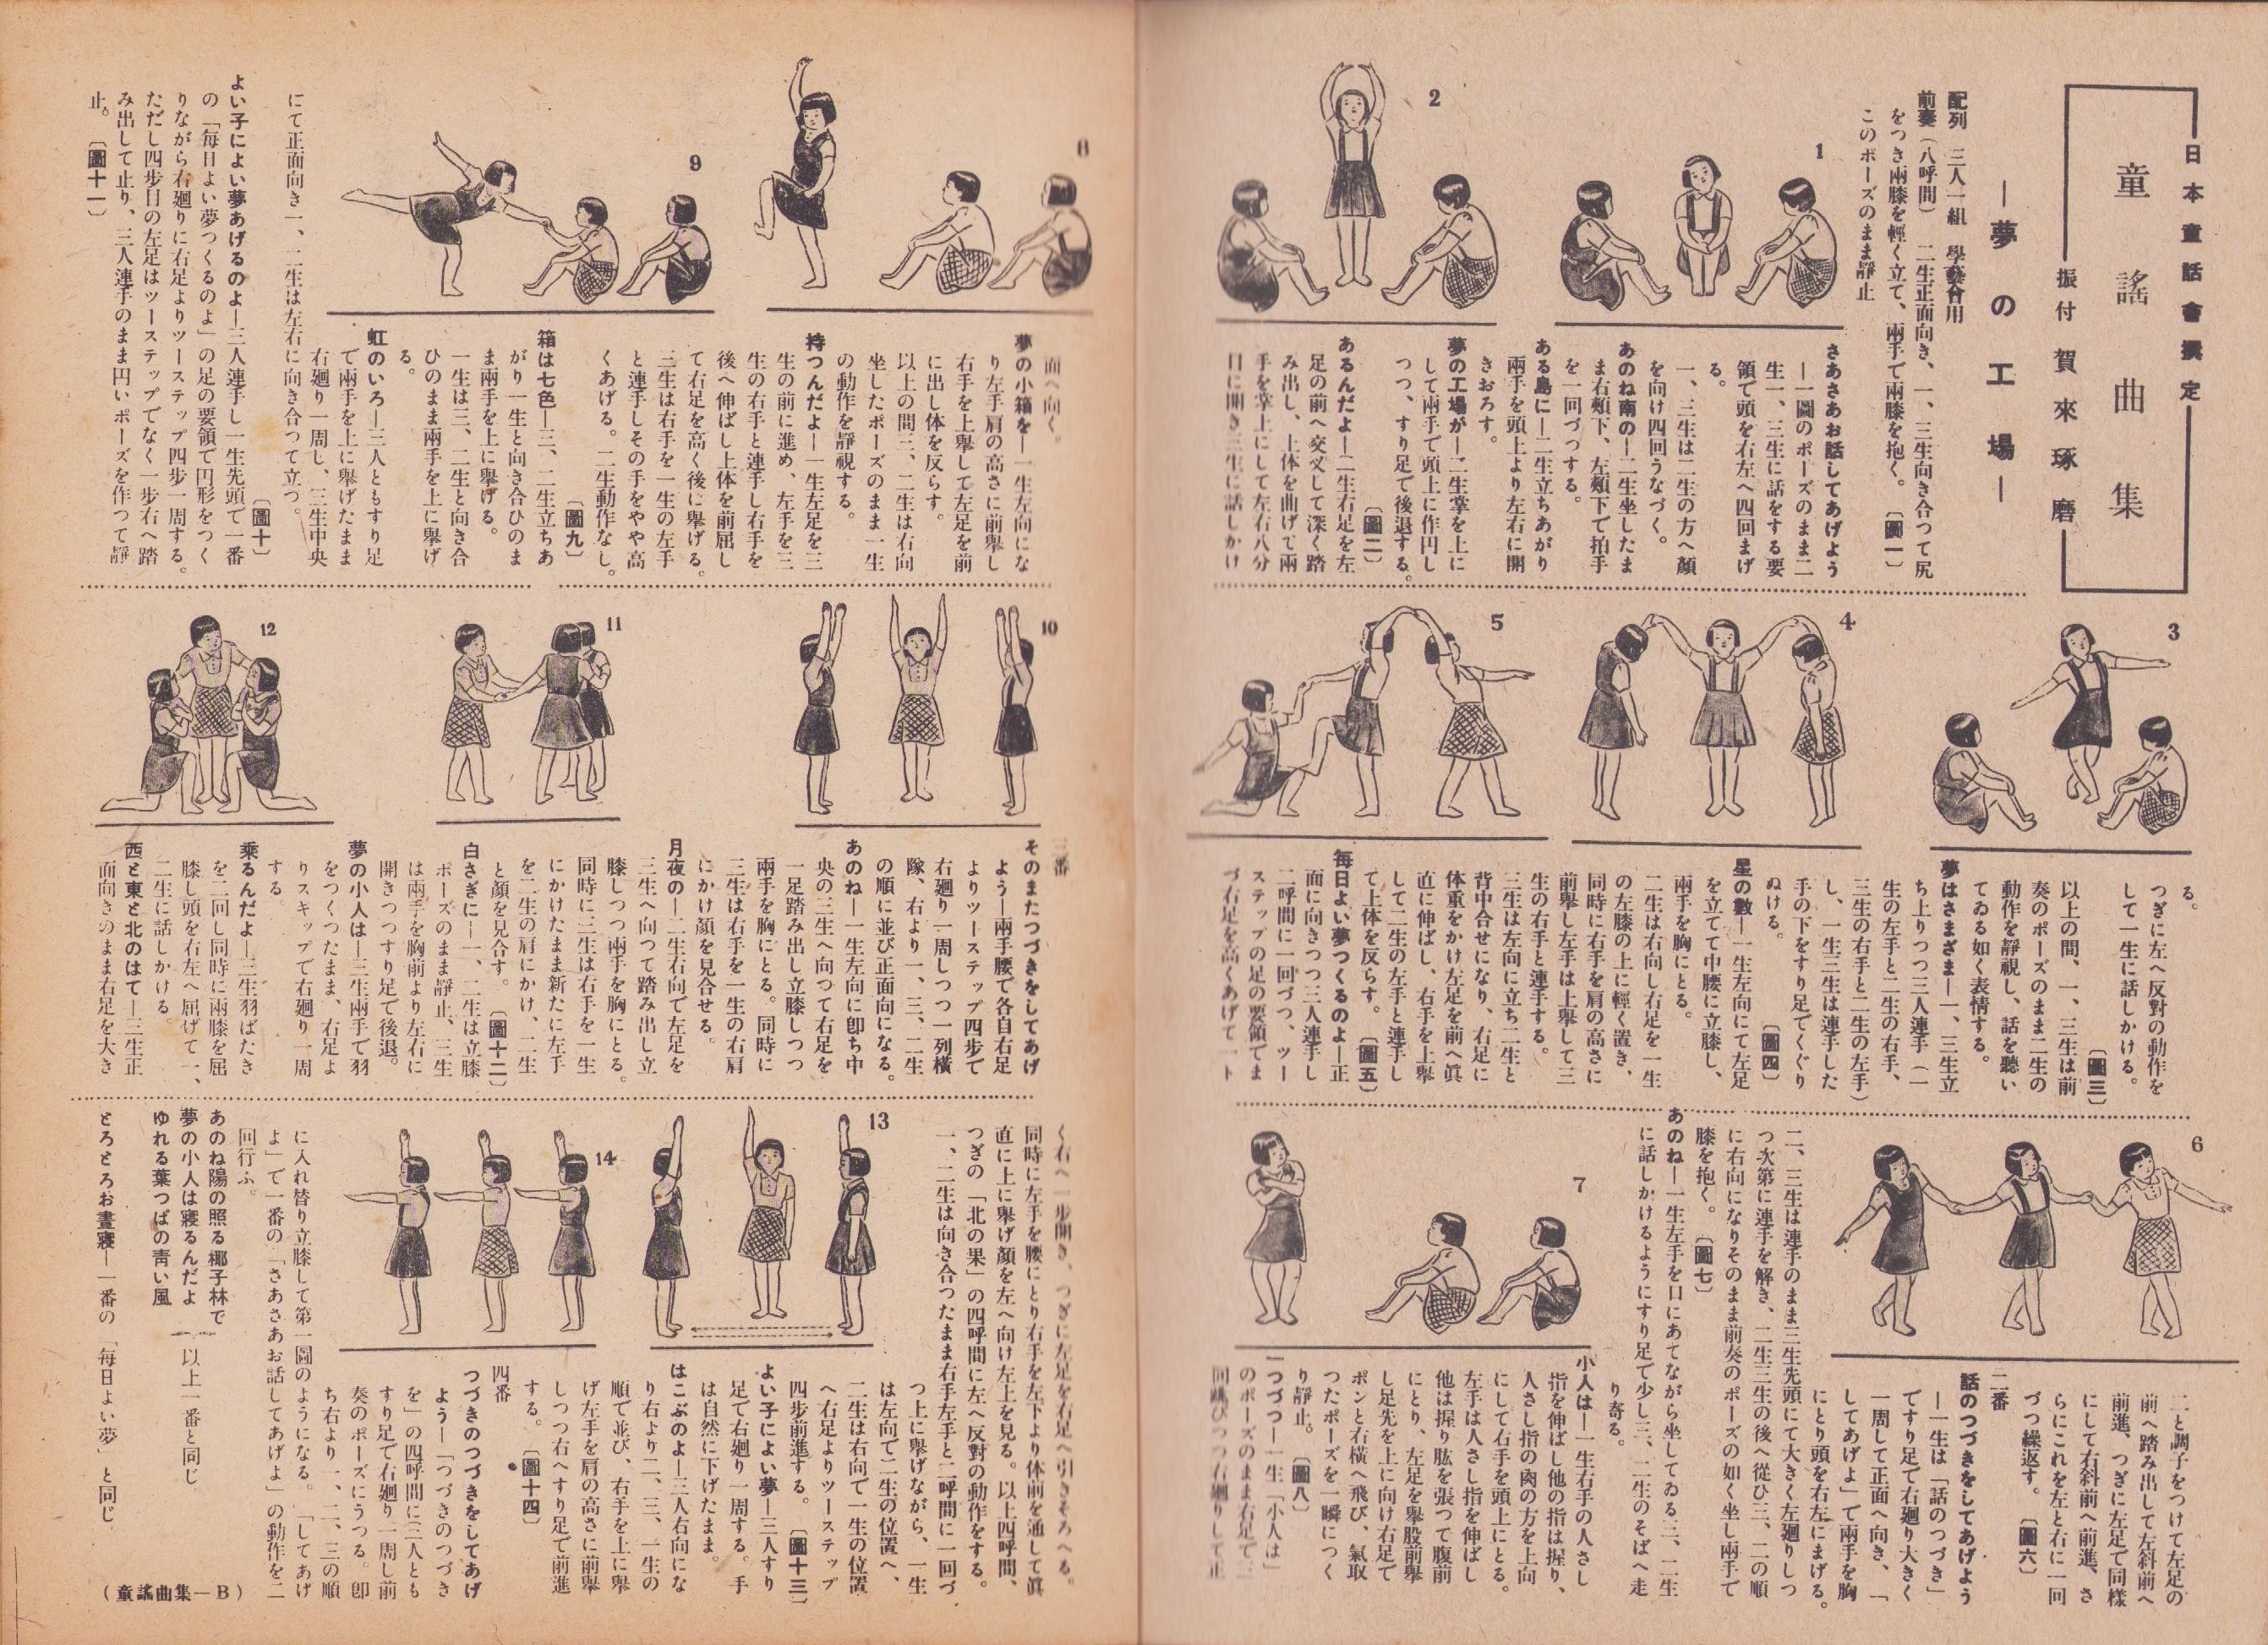 日本童話會撰定
童謠曲集
振付 賀來琢磨
―夢の工場―
配列 三人一組 學藝會用
前奏(八呼間) 二生正面向き、一、三生向き合つて尻
をつき兩膝を輕く立て、兩手で兩膝を抱く。〔圖一〕
このポーズのまま靜止
1
2
さあさあお話してあげよう
―一圖のポーズのまま二
生一、三生に話をする要
領で頭を右左へ四回まげ
る。
一、三生は二生の方へ顏
を向け四回うなづく。
あのね南の―二生坐したま
ま右頰下、左頰下で拍手
を一回づつする。
ある島に―二生立ちあがり
兩手を頭上より左右に開
きおろす。
夢の工場が―二生掌を上に
して兩手で頭上に作円し
つつ、すり足で後退する。
〔圖二〕
あるんだよ―二生右足を左
足の前へ交叉して深く踏
み出し、上体を曲げて兩
手を掌上にして左右八分
目に開き三生に話しかけ
3
4
5
る。
つぎに左へ反對の動作を
して一生に話しかける。
〔圖三〕
以上の間、一、三生は前
奏のポーズのまま二生の
動作を靜視し、話を聽い
てゐる如く表情する。
夢はさまざま―一、三生立
ち上りつつ三人連手(一
生の左手と二生の右手、
三生の右手と二生の左手)
し、一生三生は連手した
手の下をすり足でくぐり
ぬける。
〔圖四〕
星の數―一生左向にて左足
を立てて中腰に立膝し、
兩手を胸にとる。
二生は右向し右足を一生
の左膝の上に輕く置き、
同時に右手を肩の高さに
前擧し左手は上擧して三
生の右手と連手する。
三生は左向に立ち二生と
背中合せになり、右足に
体重をかけ左足を前へ眞
直に伸ばし、右手を上擧
して二生の左手と連手し
て上体を反らす。〔圖五〕
每日よい夢つくるのよ―正
面に向きつつ三人連手し
二呼間に一回づつ、ツー
ステップの足の要領でま
づ右足を高くあげて一ト
6
7
二と調子をつけて左足の
前へ踏み出して左斜前へ
前進、つぎに左足で同樣
にして右斜前へ前進、さ
らにこれを左と右に一回
づつ繰返す。〔圖六〕
二番
話のつづきをしてあげよう
―一生は「話のつづき」
ですり足で右廻り大きく
一周して正面へ向き、「
してあげよ」で兩手を胸
にとり頭を右左にまげる。
二、三生は連手のまま三生先頭にて大きく左廻りしつ
つ次第に連手を解き、二生三生の後へ從ひ三、二の順
に右向になりそのまま前奏のポーズの如く坐し兩手で
膝を抱く。〔圖七〕
あのね―一生左手を口にあてながら坐してゐる三、二生
に話しかけるようにすり足で少し三、二生のそばへ走
り寄る。
小人は―一生右手の人さし
指を伸ばし他の指は握り、
人さし指の肉の方を上向
にして右手を頭上にとる。
左手は人さし指を伸ばし
他は握り肱を張つて腹前
にとり、左足を擧股前擧
し足先を上に向け右足で
ポンと右横へ飛び、氣取
つたポーズを一瞬につく
り靜止。〔圖八〕
一つづつ―一生「小人は」
のポーズのまま右足で三
回跳びつつ右廻りして正
8
9
面へ向く。
夢の小箱を―一生左向にな
り左手肩の高さに前擧し
右手を上擧して左足を前
に出し体を反らす。
以上の間三、二生は右向
坐したポーズのまま一生
の動作を靜視する。
持つんだよ―一生左足を三
生の前に進め、左手を三
生の右手と連手し右手を
後へ伸ばし上体を前屈し
て右足を高く後に擧げる。
三生は右手を一生の左手
と連手しその手をやや高
くあげる。二生動作なし。
〔圖九〕
箱は七色―三、二生立ちあ
がり一生と向き合ひのま
ま兩手を上に擧げる。
一生は三、二生と向き合
ひのまま兩手を上に擧げ
る。
虹のいろ―三人ともすり足
で兩手を上に擧げたまま
右廻り一周し、三生中央
にて正面向き一、二生は左右に向き合つて立つ。
〔圖十〕
よい子によい夢あげるのよ―三人連手し一生先頭で一番
の「每日よい夢つくるのよ」の足の要領で円形をつく
りながら右廻りに右足よりツーステップ四步一周する。
ただし四步目の左足はツーステップでなく一步右へ踏
み出して止り、三人連手のまま円いポーズを作つて靜
止。〔圖十一〕
10
11
12
三番
そのまたつづきをしてあげ
よう―兩手腰で各自右足
よりツーステップ四步で
右廻り一周しつつ一列橫
隊、右より一、三、二生
の順に並び正面向になる。
あのね―一生左向に卽ち中
央の三生へ向つて右足を
一足踏み出し立膝しつつ
兩手を胸にとる。同時に
三生は右手を一生の右肩
にかけ顏を見合せる。
月夜の―二生右向で左足を
三生へ向つて踏み出し立
膝しつつ兩手を胸にとる。
同時に三生は右手を一生
にかけたまま新たに左手
を二生の肩にかけ、二生
と顏を見合す。〔圖十二〕
白さぎに―一、二生は立膝
ポーズのまま靜止、三生
は兩手を胸前より左右に
開きつつすり足で後退。
夢の小人は―三生兩手で羽
をつくつたまま、右足よ
りスキップで右廻り一周
する。
乘るんだよ―三生羽ばたき
を二回し同時に兩膝を屈
膝し頭を右左へ屈げて一、
二生に話しかける。
西と東と北のはて―三生正
面向きのまま右足を大き
13
14
く右へ一步開き、つぎに左足を右足へ引きそろへる。
同時に左手を腰にとり右手を左下より体前を通して眞
直に上に擧げ顏を左へ向け左上を見る。以上四呼間、
つぎの「北の果」の四呼間に左へ反對の動作をする。
一、二生は向き合つたまま右手左手と二呼間に一回づ
つ上に擧げながら、一生
は左向で二生の位置へ、
二生は右向で一生の位置
へ右足よりツーステップ
四步前進する。〔圖十三〕
よい子によい夢―三人すり
足で右廻り一周する。手
は自然に下げたまま。
はこぶのよ―三人右向にな
り右より二、三、一生の
順で並び、右手を上に擧
げ左手を肩の高さに前擧
しつつ右へすり足で前進
する。〔圖十四〕
四番
つづきのつづきをしてあげ
よう―「つづきのつづき
を」の四呼間に三人とも
すり足で右廻り一周し前
奏のポーズにうつる。卽
ち右より一、二、三の順
に入れ替り立膝して第一圖のようになる。「してあげ
よ」で一番の「さあさあお話してあげよ」の動作を二
回行ふ。
あのね陽の照る椰子林で
夢の小人は寢るんだよ
ゆれる葉つぱの靑い風
以上一番と同じ
とろとろお晝寢―一番の「每日よい夢」と同じ
(童謠曲集―B)